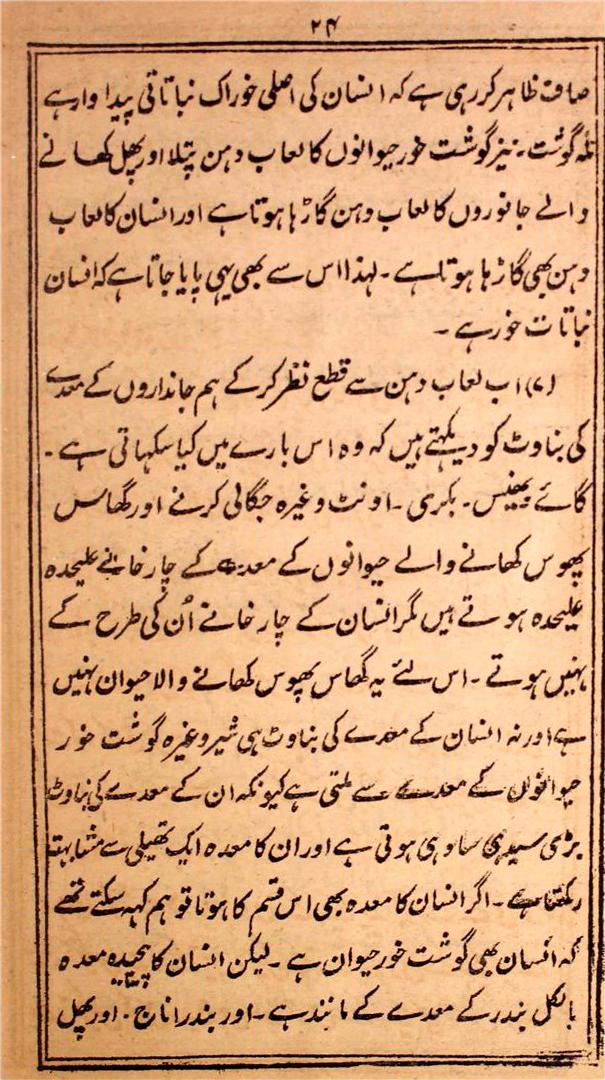 ۲۴
صاف ظاہر کر رہی ہے کہ انسان کی اصلی خوراک نباتاتی پیداوار ہے
نکہ گوشت ۔ نیز گوشت خور حیوانوں کا لعاب دہن پتلا اور پھل کھانے
والے جانوروں کا لعاب دہن گاڑہا ہوتا ہے اور انسان کا لعاب
دہن بھی گاڑہا ہوتا ہے ۔ لہذا اس سے بھی یہی پایا جاتا ہے کہ انسان
نباتات خور ہے ۔
(۷) اب لعاب دہن سے قطع نظر کر کے ہم جانداروں کے معدے
کی بناوٹ کو دیکہتے ہیں کہ وہ اس بارے میں کیا سکہاتی ہے ۔
گائے بھینس ۔ بکری ۔ اونٹ وغیرہ جگالی کرنے اور گھاس
پھوس کھانے والے حیوانوں کے معدے کے چار خانے علیحدہ
علیحدہ ہوتے ہیں مگر انسان کے چار خانے اُن کی طرح کے
نہیں ہوتے ۔ اس لئے یہ گھاس پھوس کھانے والا حیوان نہیں
ہے اور نہ انسان کے معدے کی بناوٹ ہی شیر وغیرہ گوشت خور
حیوانوں کے معدے سے ملتی ہے کیونکہ ان کے معدے کی بناوٹ
بڑی سیدہی سادہی ہوتی ہے اور ان کا معدہ ایک تھیلی سے مشابہت
رکھتا ہے ۔ اگر انسان کا معدہ بھی اس قسم کا ہوتا تو ہم کہہ سکتے تھے
کہ انسان بھی گوشت خور حیوان ہے ۔ لیکن انسان کا پیچیدہ معدہ
بالکل بندر کے معدے کے مانند ہے ۔ اور بندر اناج ۔ اور پھل